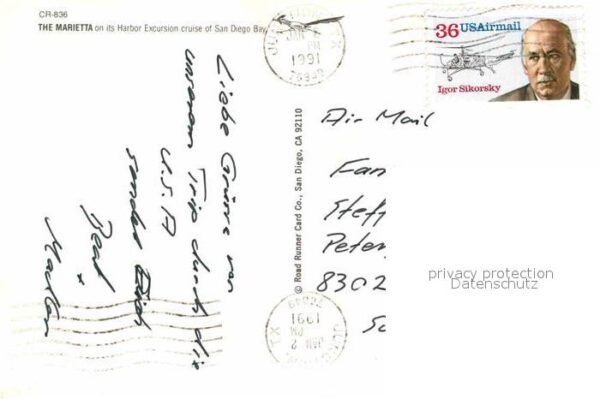 CR-836
THE MARIETTA on its Harbor Excursion cruise of San Diego Bay
Liebe Grüsse von
unserem Trip durch die
U.S.A
sendet Euch
Beat +
1991
PM
36 USAirmail
Igor Sikorsky
© Road Runner Card Co., San Diego, CA 92110
Air Mail
Fam
Steff
Peter
8302
privacy protection
Datenschutz
TX
JAN 2
PM
1991